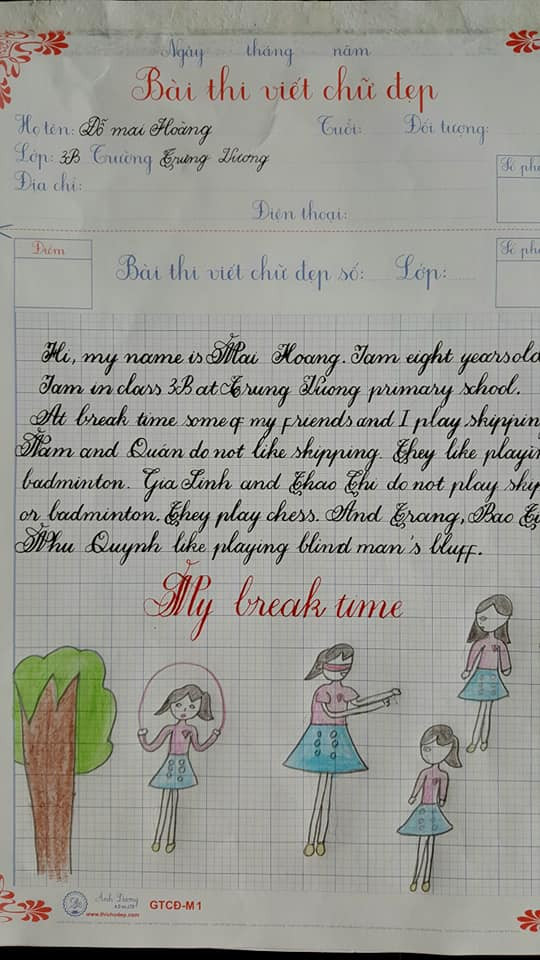 Ngày tháng năm
Bài thi viết chữ đẹp
Họ tên: Đỗ mai Hoàng Tuổi: Đối tượng:
Lớp: 3B Trường Trưng Vương
Địa chỉ: Số ph
Điện thoại:
Điểm Số ph
Bài thi viết chữ đẹp số: Lớp:
Hi, my name is Mai Hoang. I am eight years old
I am in class 3B at Trung Vuong primary school.
At break time some of my friends and I play skippin
Nam and Quán do not like skipping. They like playin
badminton. Gia Linh and Thao Chi do not play skip
or badminton. They play chess. And Trang, Bao
Nhu Quynh like playing blind man's bluff.
My break time
Ánh Dương
www.thichudep.com
GTCĐ-M1